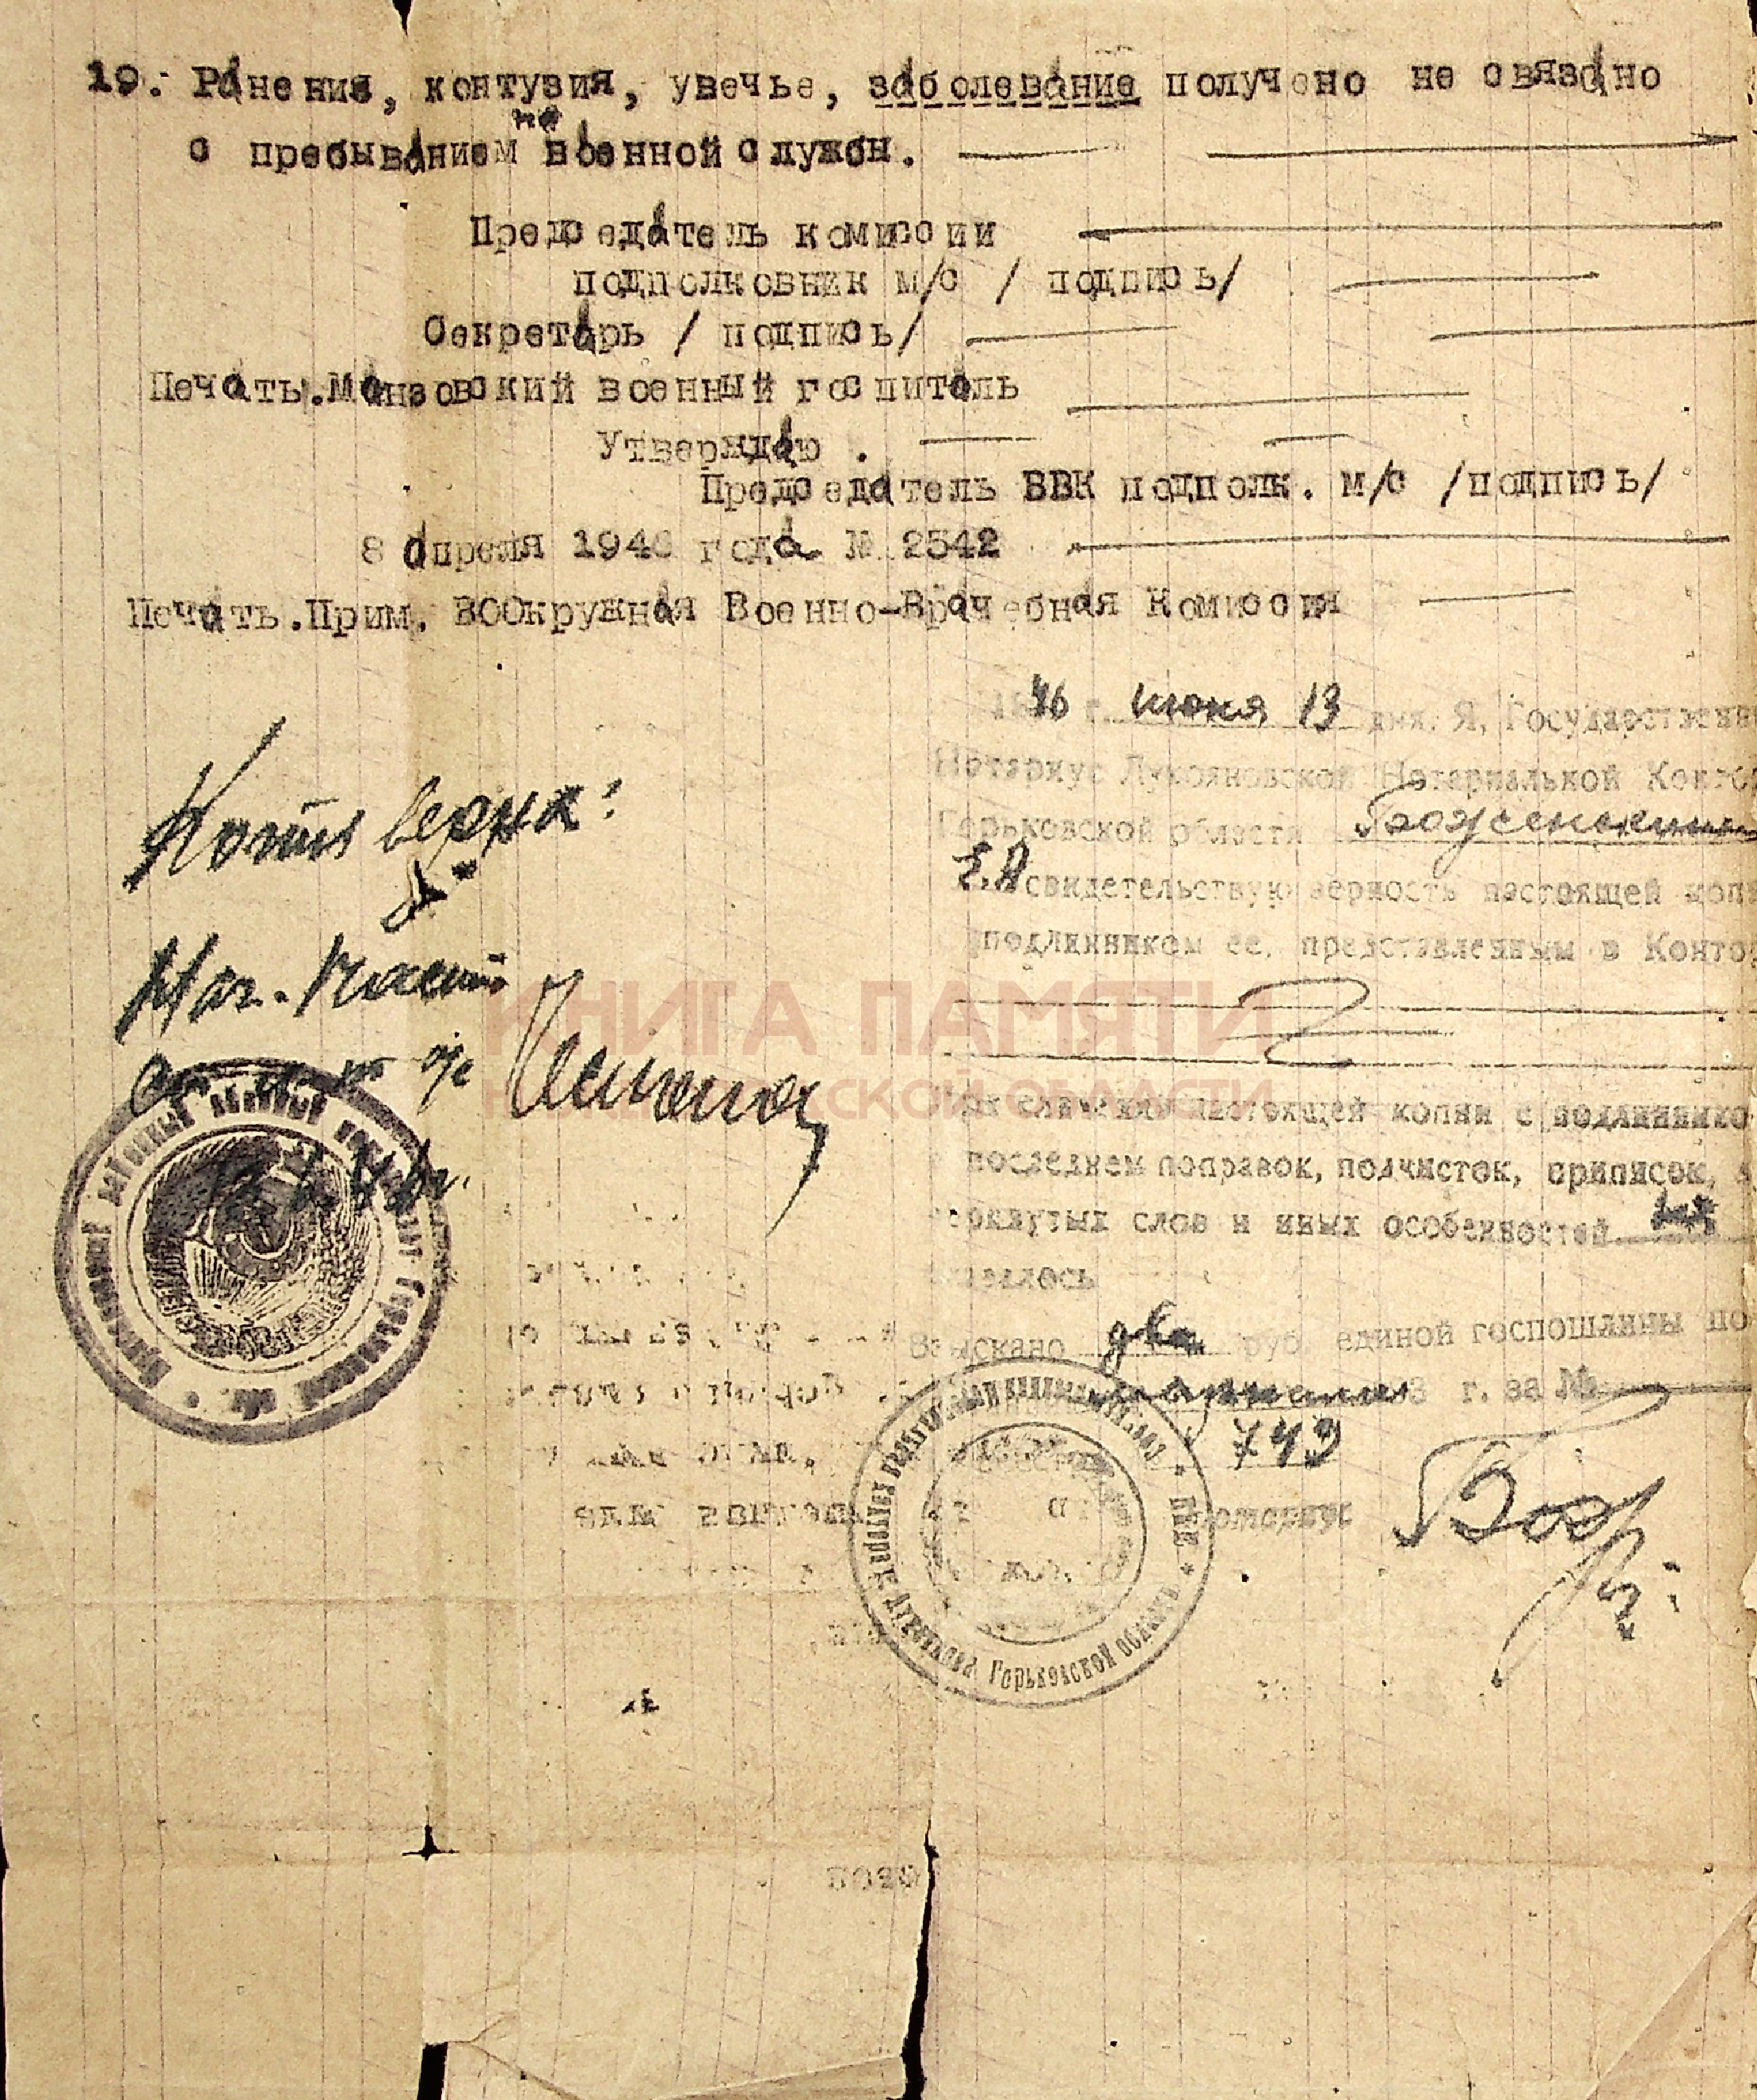 19. Ранения, контузия, увечье, заболевание получено не связано
с пребыванием на военной службн.
Председатель комиссии
подполковник м/с / подпись/
Секретарь / подпись/
Печать.Манзовский военный госпиталь
Утверждаю .
Председатель ВВК подполк. м/с /подпись/
8 апреля 1946 года № 2542
Печать.Прим. ВООкружная Военно-Врачебная Комиссия
1946 г. июня 13 дня. Я, Государственн
Нотариус Лукояновской Нотариальной Конто
Горьковской области
Е.А свидетельствую верность настоящей копи
подлинником ее, представленным в Конто
Копия верна:
Нач. части
КНИГА ПАМЯТИ
НИЖЕГОРОДСКОЙ ОБЛАСТИ
При сличении настоящей копии с подлиннико
в последнем поправок, подчисток, приписок,
черкнутых слов и иных особенностей не
оказалось
Взыскано два руб. единой госпошлины по
марками г. за №
743
Нотариус
Горьковской области